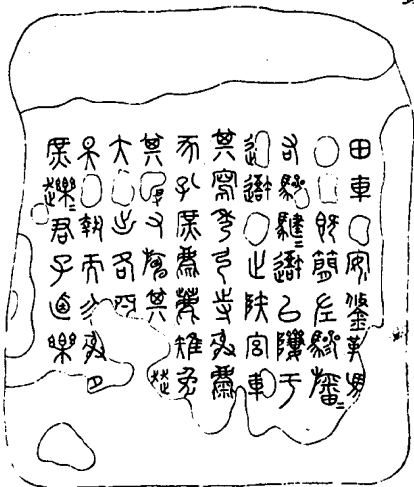 田車安鋚勒
既簡左驂旛=
右驂騝=避以隮于
邍避止陕宮車
其寫秀弓寺射麋
豕孔庶麀鹿雉兔
其又其
大出各亞
執而勿射
庶趮=君子逌樂